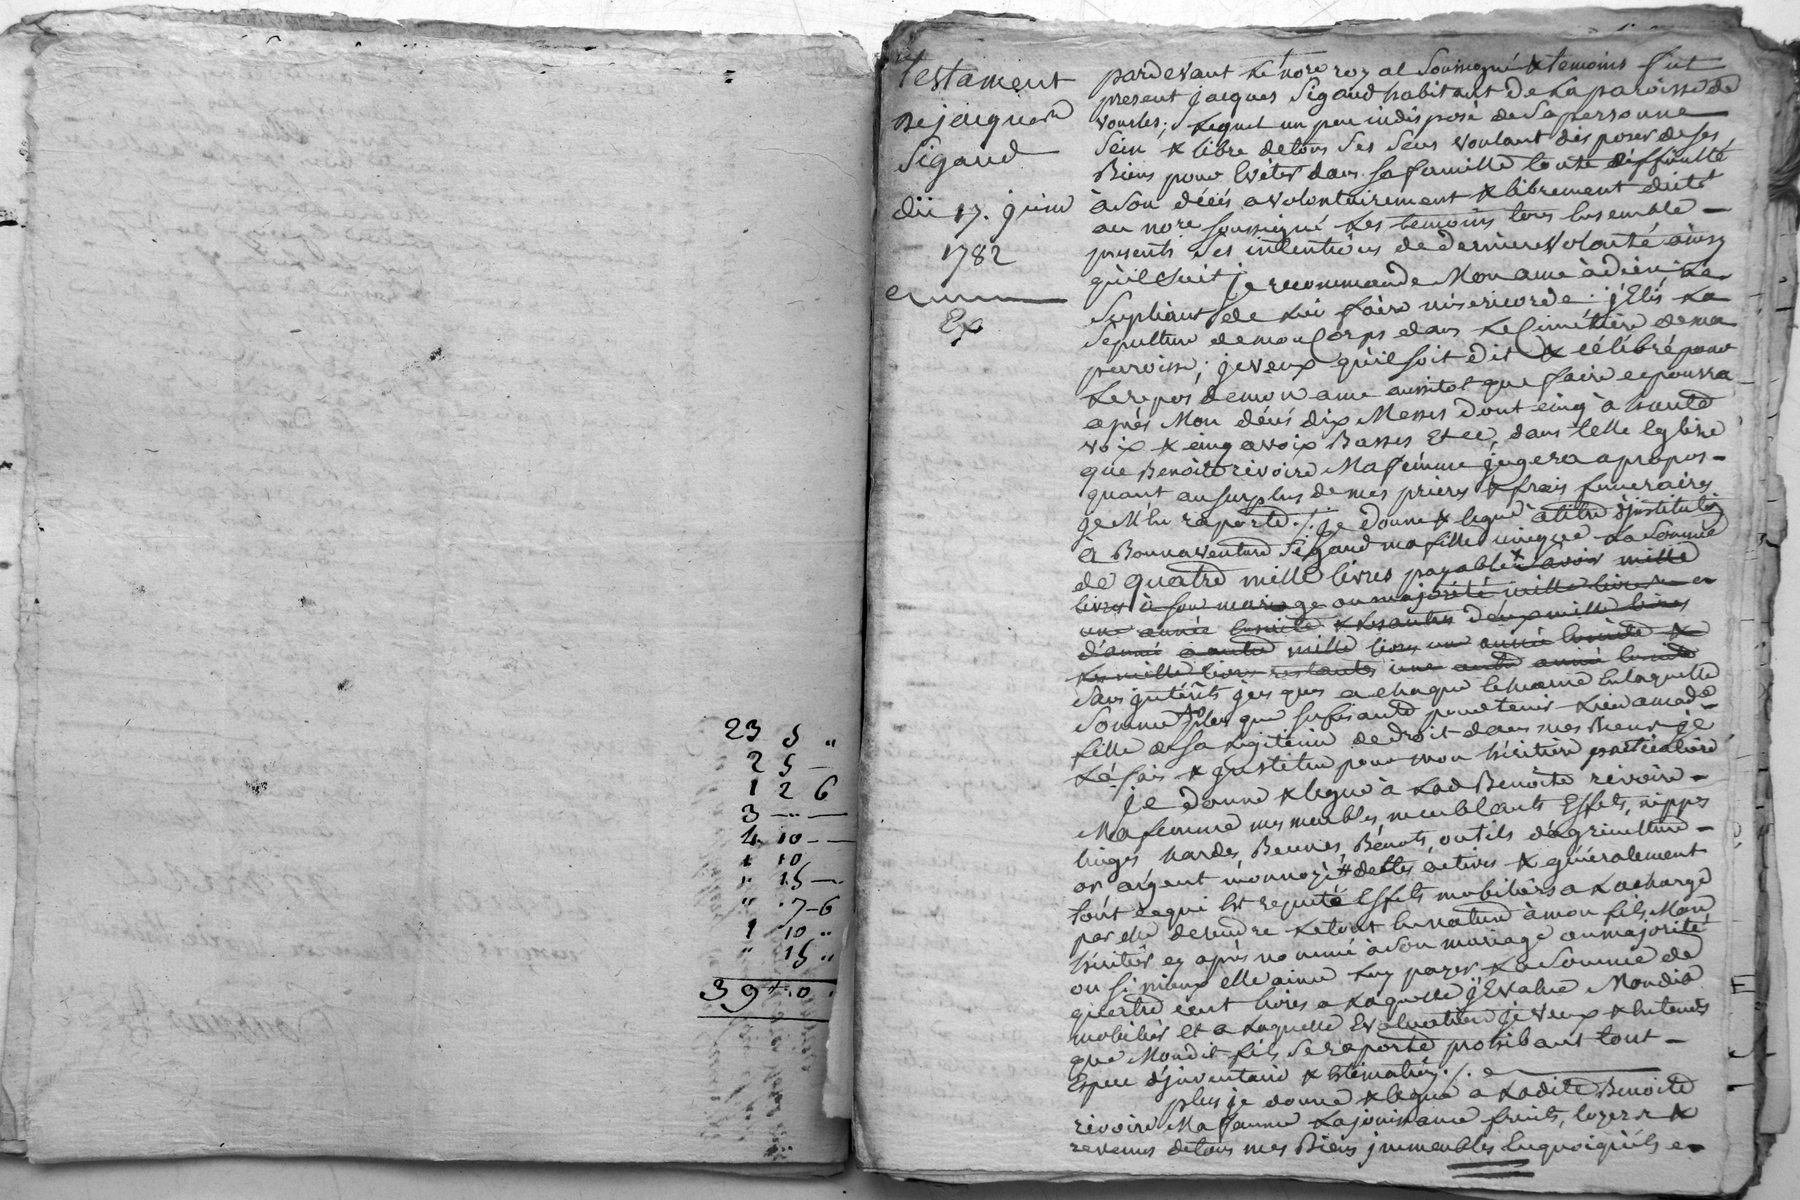 23 5 "
2 5 —
1 2 6
3 —"— —
4 10 — —
1 10
" 15 —
" 7-6
1 10 "
" 15 "
39 " 0
testament
De jacques
Sigaud
dü 17. juin
1782
Ex
pardevant Le nore royal Soussigné & temoins fut
present jacques Sigaud habitant de La paroisse de
vourles; Lequel un peu indisposé de Sa personne
Sein & libre de tous Ses Sens voulant disposer de Ses
Biens pour Eviter dans Sa famille toute difficulté
à Son décés a volontairement & librement dicté
au nore Soussigné & es temoins tous Ensemble —
presents Ses intentions de derniere volonté ainsy
qu'il Suit je recommande Mon ame à dieu Le
Supliant de lui faire misericorde: j'Elis La
Sepulture de mon Corps dans Le Cimettiere de ma
paroisse; je veux qu'il soit dit & célébré pour
Le repos de mon ame aussitot que faire ce pourra
aprés Mon décés dix Messes dont cinq à haute
voix & cinq a voix Basses Et ce, dans telle Eglise
que Benoite révoire Ma femme jugera apropos —
quant au Surplus de mes prieres & frais funeraires
je M'En raporte ./. je donne & legue à titre d'jnstitution
à Bonnaventure Sigaud ma fille unique La Somme
de quatre mille livres payable x Savoir mille
livres à Son mariage ou majorité mille livres
une année Ensuite & Les autres deux mille livres
mille livres une année Ensuite &
Les mille livres restantes une autre année Ensuite
Sans jntérêts jusques a chaque Echeance En laquelle
Somme plus que Sufisante pour tenir Lieu a made
fille de Sa Legitime de droit dans mes Biens je
La fais & jnstitue pour mon héritiere particuliere
je donne & legue à Lad Benoite révoire —
Ma femme mes meubles meublants Effets, nippes
Linges hardes, Beuries, Bénots, outils d'agriculture —
or argent monnoyé # dettes actives & généralement
tout Ce qui Est reputé Effets mobiliers a La charge
par elle de rendre Le tout En nature à mon fils Mon
héritier cy aprés nommé à Son mariage ou majorité
ou Si mieux elle aime Luy payer La Somme de
quatre cent livres a Laquelle j'Evalue Mondit
mobilier Et a Laquelle Evaluation je veux & Entends
que Mondit fils Se raporte prohibant tout —
Espece d'jnventaire & Estimation ./.
plus je donne & legue a Ladite Benoite
révoire Ma femme La jouissance fruits, loyers &
revenus de tous mes Biens jmmeubles En quoi qu'ils c-